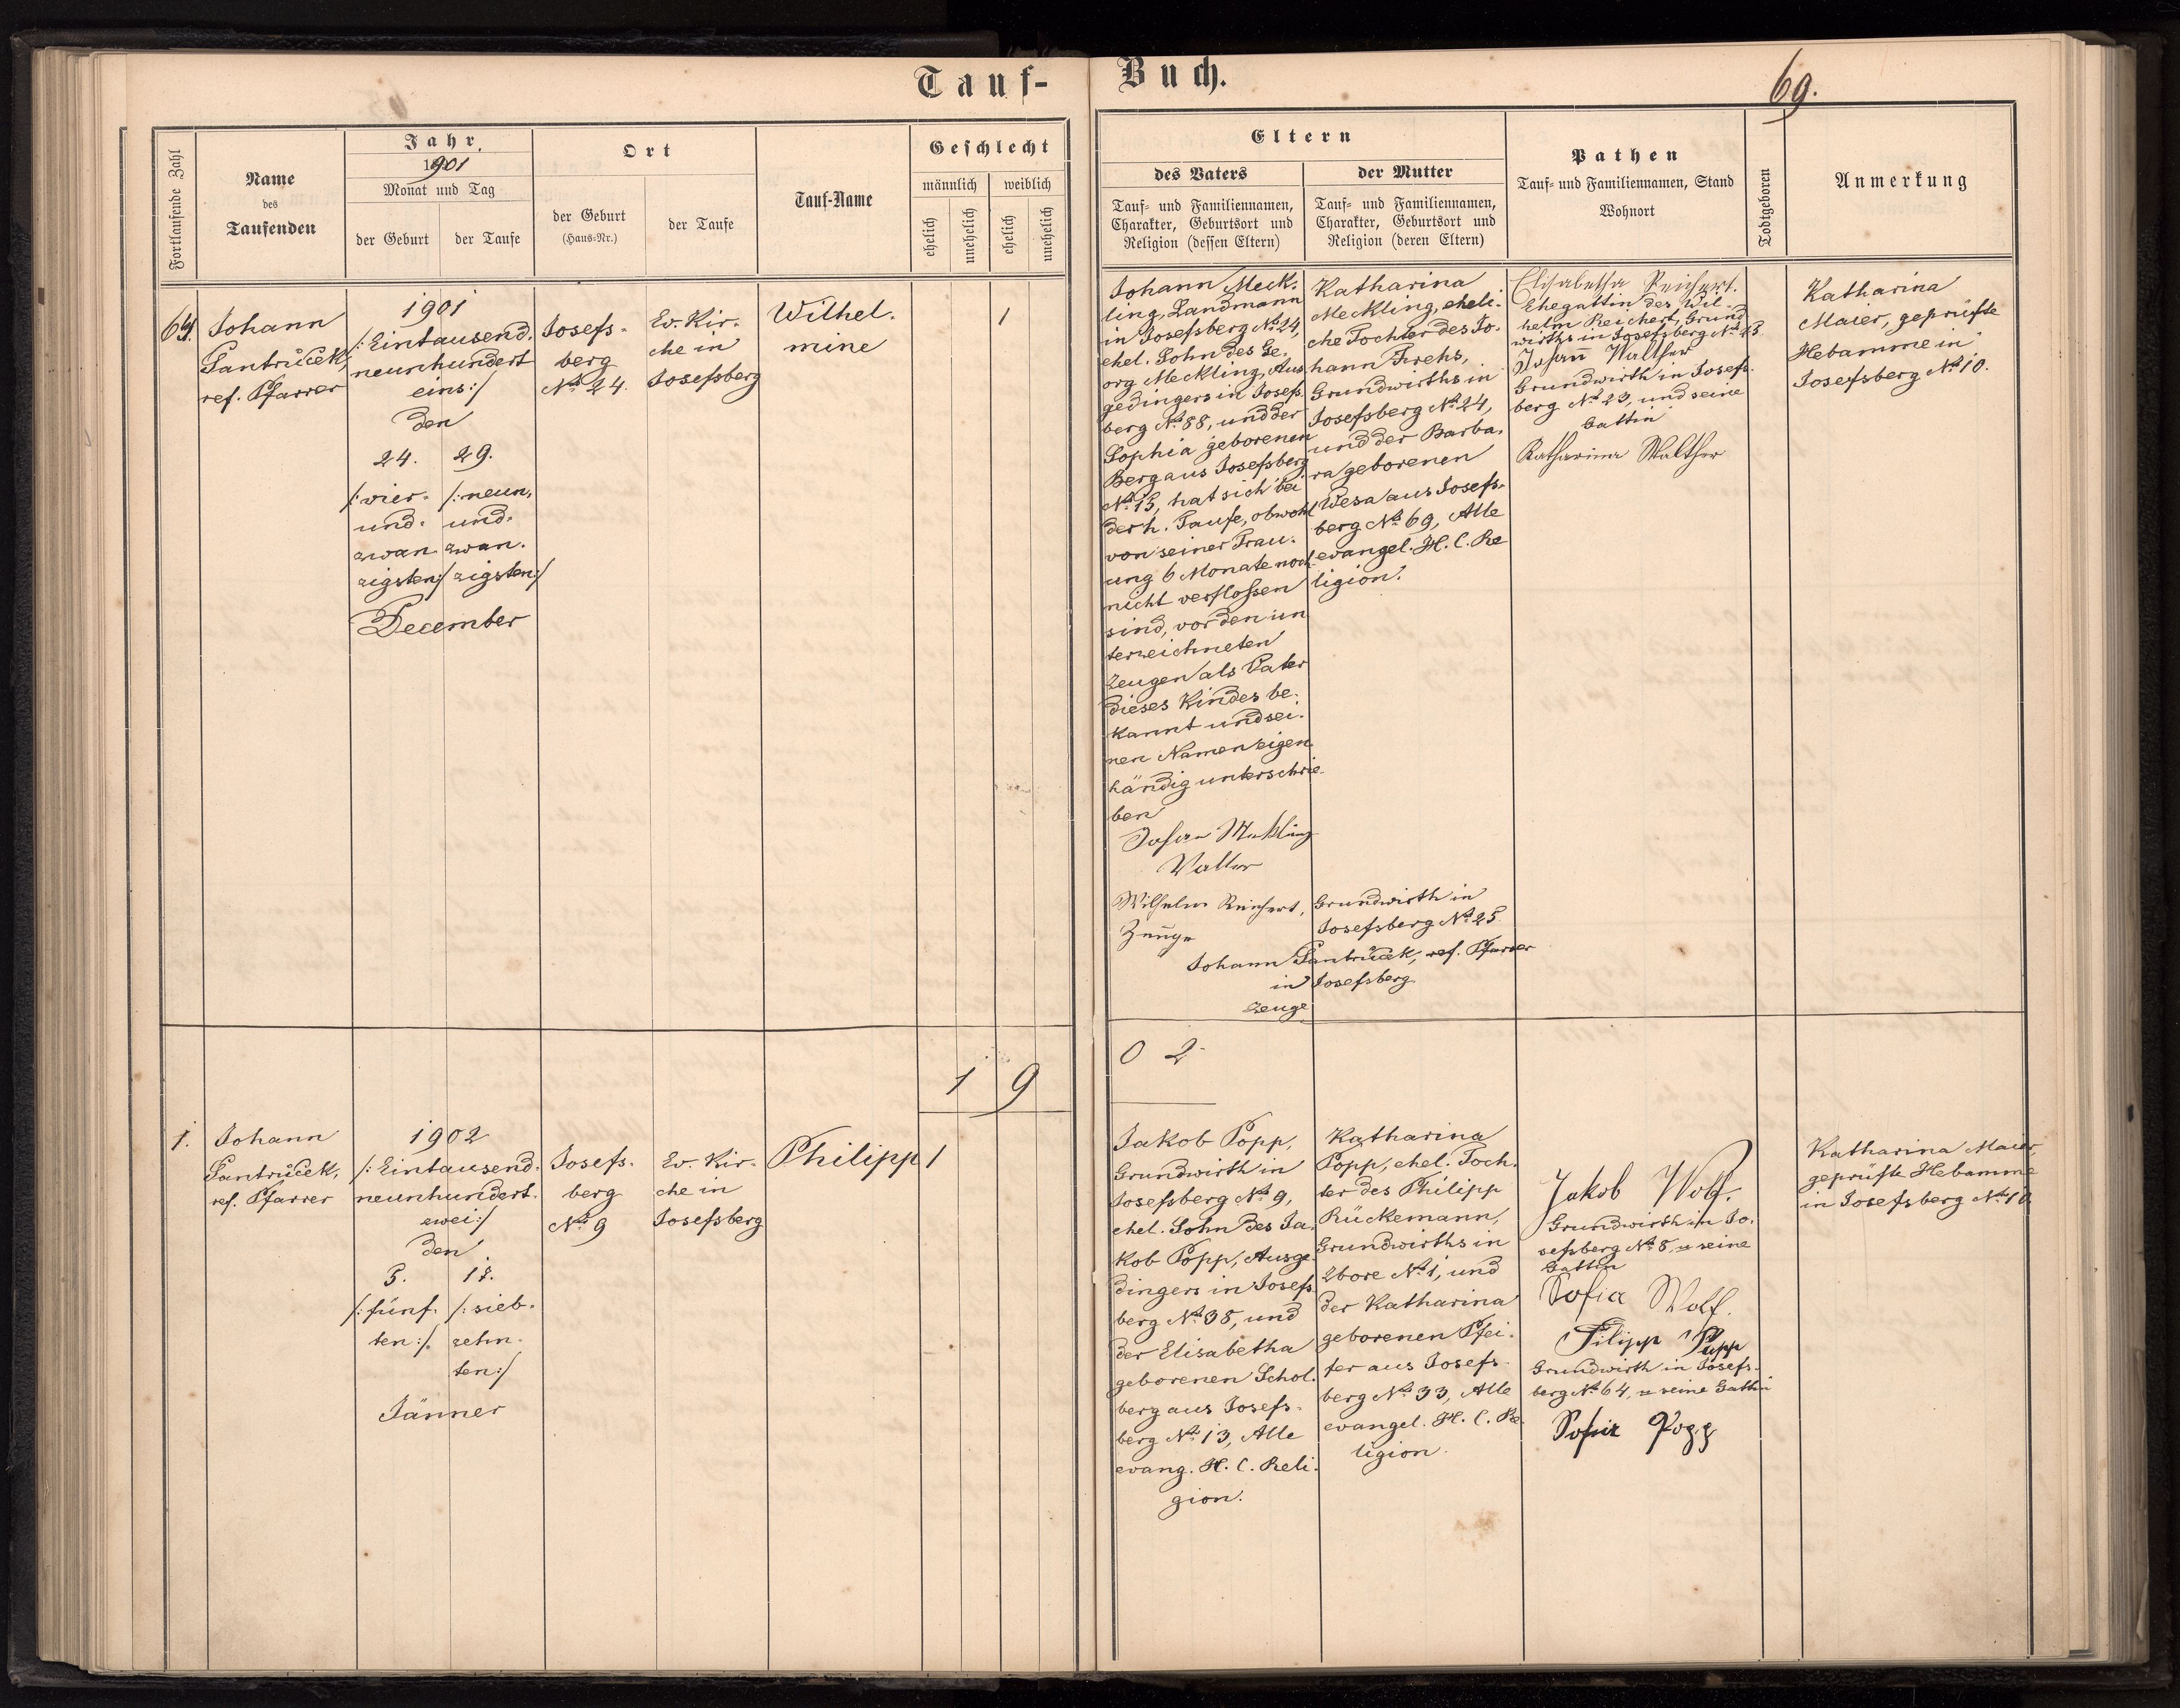 Tauf-
Buch.
69.
Fortlaufende Zahl
Name
des
Taufenden
Jahr
1901
Monat und Tag
der Geburt
der Taufe
Ort
der Geburt
(Haus-Nr.)
der Taufe
Tauf-Name
Geschlecht
männlich
weiblich
ehelich
unehelich
ehelich
unehelich
Eltern
des Vaters
Tauf- und Familiennamen,
Charakter, Geburtsort und
Religion (dessen Eltern)
der Mutter
Tauf- und Familiennamen,
Charakter, Geburtsort und
Religion (deren Eltern)
Pathen
Tauf- und Familiennamen, Stand
Wohnort
Todtgeboren
Anmerkung
64.
Johann
Pantrůček,
ref. Pfarrer
1901
/:Eintausend.
neunhundert
eins:/
den
24.
/:vier.
und.
zwan.
zigsten:/
29.
/:neun.
und.
zwan.
zigsten:/
December
Josefs.
berg
No 24.
Ev. Kir.
che in
Josefsberg
Wilhel.
mine
1
Johann Meck.
ling, Landmann
in Josefsberg No 24,
ehel. Sohn des Ge.
org Meckling, Aus
gedingers in Josefs
berg No 88, und der
Sophia geborenen
Berg aus Josefsberg
No 15, hat sich bei
der h. Taufe, obwohl
von seiner Trau.
ung 6 Monate noch
nicht verflossen
sind, vor den un
terzeichneten
Zeugen als Vater
dieses Kindes be.
kannt und sei.
nen Namen eigen
händig unterschrie.
ben
Johann Mekling
Vatter
Wilhelm Reichert,
Zeuge
Grundwirth in
Josefsberg No 25.
Johann Pantrůček, ref. Pfarrer
in Josefsberg
Zeuge
Katharina
Meckling, eheli.
che Tochter des Jo.
hann Frehs,
Grundwirths in
Josefsberg No 24,
und der Barba.
ra geborenen
Wesa aus Josefs.
berg No 69, Alle
evangel. H. C. Re
ligion.
Elisabetha Reichert.
Ehegattin des Wil.
helm Reichert, Grund
wirths in Josefsberg No 25
Johann Walther
Grundwirth in Josefs.
berg No 23, und seine
Gattin
Katharina Walther
Katharina
Maier, geprüfte
Hebamme in
Josefsberg No 10.
1 9
0 2
1.
Johann
Pantrůček,
ref. Pfarrer
1902
/:Eintausend.
neunhundert.
zwei:/
den
5.
/:fünf.
ten:/.
17.
/:sieb.
zehn.
ten:/
Jänner
Josefs.
berg
No 9
Ev. Kir.
che in
Josefsberg
Philipp
1
Jakob Popp,
Grundwirth in
Josefsberg No 9,
ehel. Sohn des Ja.
kob Popp, Ausge
dingers in Josefs.
berg No 38, und
der Elisabetha
geborenen Schol.
berg aus Josefs.
berg No 13, Alle
evang. H. C. Reli.
gion.
Katharina
Popp, ehel. Toch.
ter des Philipp
Rückemann,
Grundwirths in
Ugartsberg No 1, und
der Katharina
geborenen Pfei.
fer aus Josefs.
berg No 33, Alle
evangel. H. C. Re.
ligion.
Jakob Wolf.
Grundwirth in Jo.
sefsberg No 8, u seine
Gattin
Sofia Wolf.
Filipp Popp
Grundwirth in Josefs.
berg No 64, u seine Gattin
Sofia Popp
Katharina Maier,
geprüfte Hebamme
in Josefsberg No 10